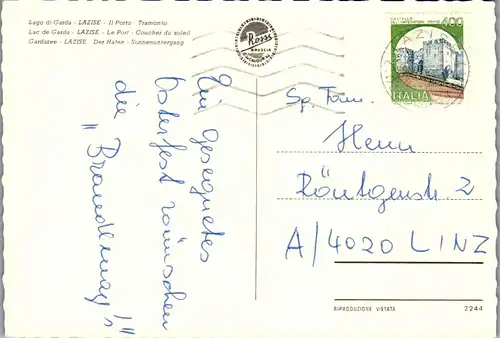 Lago di Garda - LAZISE - Il Porto - Tramonto
Lac de Garda - LAZISE - Le Port - Coucher du soleil
Gardasee - LAZISE - Der Hafen - Sonnenuntergang
Rossi
BRESCIA
CASTELLO
400
ITALIA
Ein gesegnetes
Osterfest wünschen
die "Brandlmay's"!
Sp. Fam.
Henn
Röntgenstr. 2
A/4020 LINZ
RIPRODUZIONE VIETATA
2244